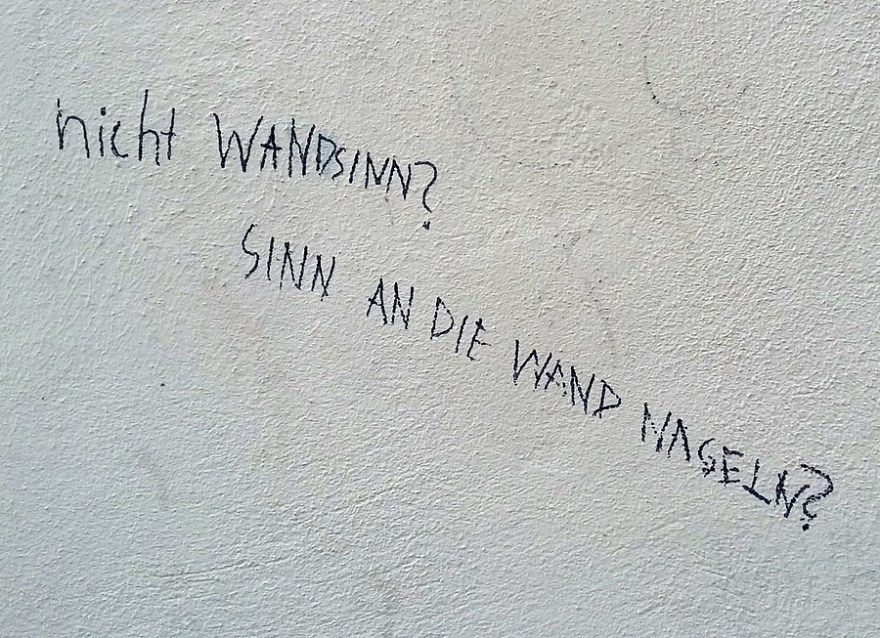 nicht WANDSINN?
SINN AN DIE WAND NAGELN?